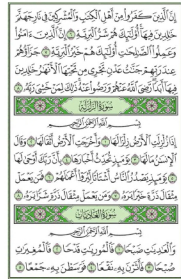 إِنَّ الَّذِينَ كَفَرُوا مِنْ أَهْلِ الْكِتَابِ وَالْمُشْرِكِينَ فِي نَارِ جَهَنَّمَ
خَالِدِينَ فِيهَا أُولَئِكَ هُمْ شَرُّ الْبَرِيَّةِ ۝ إِنَّ الَّذِينَ آمَنُوا
وَعَمِلُوا الصَّالِحَاتِ أُولَئِكَ هُمْ خَيْرُ الْبَرِيَّةِ ۝ جَزَاؤُهُمْ
عِنْدَ رَبِّهِمْ جَنَّاتُ عَدْنٍ تَجْرِي مِنْ تَحْتِهَا الْأَنْهَارُ خَالِدِينَ
فِيهَا أَبَدًا رَضِيَ اللَّهُ عَنْهُمْ وَرَضُوا عَنْهُ ذَلِكَ لِمَنْ خَشِيَ رَبَّهُ ۝
سُورَةُ الزَّلْزَلَةِ
بِسْمِ اللَّهِ الرَّحْمَنِ الرَّحِيمِ
إِذَا زُلْزِلَتِ الْأَرْضُ زِلْزَالَهَا ۝ وَأَخْرَجَتِ الْأَرْضُ أَثْقَالَهَا ۝ وَقَالَ
الْإِنْسَانُ مَا لَهَا ۝ يَوْمَئِذٍ تُحَدِّثُ أَخْبَارَهَا ۝ بِأَنَّ رَبَّكَ أَوْحَى لَهَا
۝ يَوْمَئِذٍ يَصْدُرُ النَّاسُ أَشْتَاتًا لِيُرَوْا أَعْمَالَهُمْ ۝ فَمَنْ يَعْمَلْ
مِثْقَالَ ذَرَّةٍ خَيْرًا يَرَهُ ۝ وَمَنْ يَعْمَلْ مِثْقَالَ ذَرَّةٍ شَرًّا يَرَهُ ۝
سُورَةُ الْعَادِيَاتِ
بِسْمِ اللَّهِ الرَّحْمَنِ الرَّحِيمِ
وَالْعَادِيَاتِ ضَبْحًا ۝ فَالْمُورِيَاتِ قَدْحًا ۝ فَالْمُغِيرَاتِ
صُبْحًا ۝ فَأَثَرْنَ بِهِ نَقْعًا ۝ فَوَسَطْنَ بِهِ جَمْعًا ۝